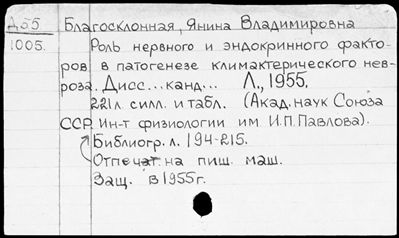 Д55 Благосклонная, Янина Владимировна
1005. Роль нервного и эндокринного факто-
ров в патогенезе климактерического нев-
роза. Дисс... канд... Л., 1955.
221л. силл. и табл. (Акад. наук Союза
ССР. Ин-т физиологии им И.П. Павлова).
Библиогр. л. 194-215.
Отпечат. на пиш. маш.
Защ. в 1955г.